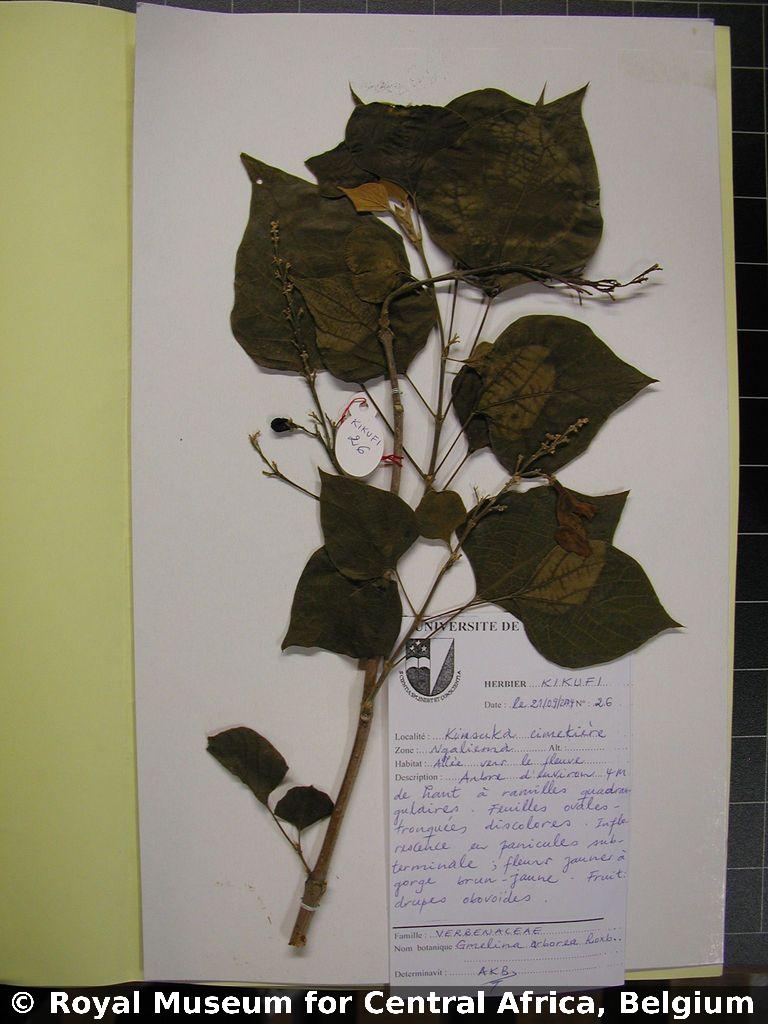 KIKUFI
26
UNIVERSITE DE
SCIENTIA SPLENDET ET CONSCIENTIA
HERBIER KIKUFI
Date : le 21/09/ N° : 26
Localité : Kinsuka cimetière
Zone : Ngaliema Alt. :
Habitat : Allée vers le fleuve
Description : Arbre d'environ 4m
de haut à ramilles quadran
gulaires. Feuilles ovales-
tronquées discolores. Inflo
rescence en panicules sub-
terminale ; fleurs jaunes à
gorge brun-jaune. Fruit:
drupes obovoïdes.
Famille : VERBENACEAE
Nom botanique Gmelina arborea Roxb.
Determinavit : AKB
© Royal Museum for Central Africa, Belgium